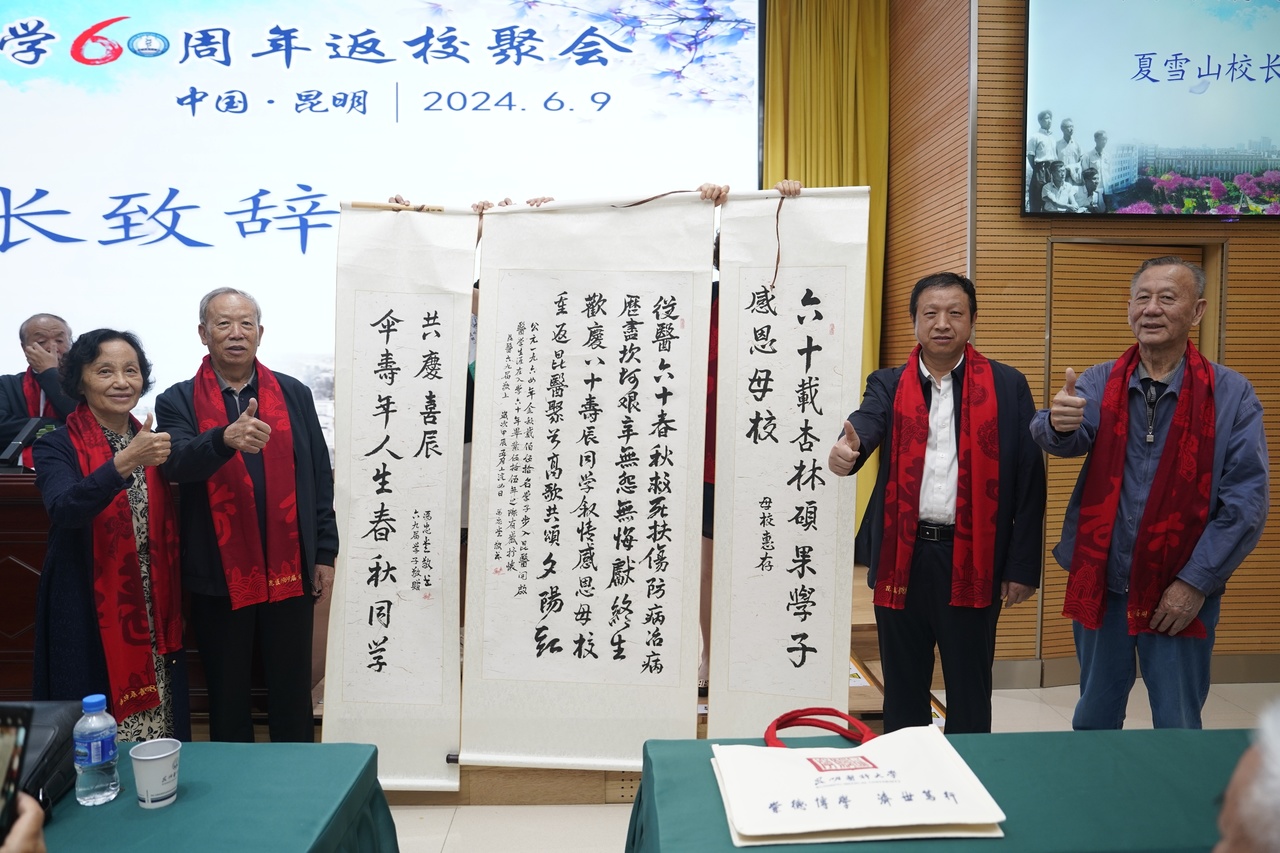 学60周年返校聚会
中国·昆明 2024. 6. 9
长致辞
夏雪山校长
六十載杏林碩果學子
感恩母校
母校惠存
從醫六十春秋救死扶傷防病治病
歷盡坎坷艱辛無怨無悔獻終生
歡慶八十壽辰同学叙情感恩母校
重返昆醫聚首高歌共頌夕陽紅
共慶喜辰
傘壽年人生春秋同学
六九届學子敬贈
昆明醫科大學